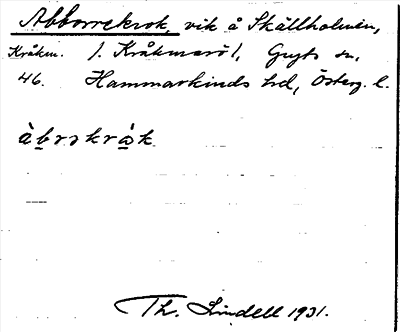 Abborrekrok, vik å Skällholmen,
Kråkm. f. Kråkmarö f, Gryts sn,
46. Hammarkinds hd, Österg. l.
àbrskråk
Th. Lindell 1931.